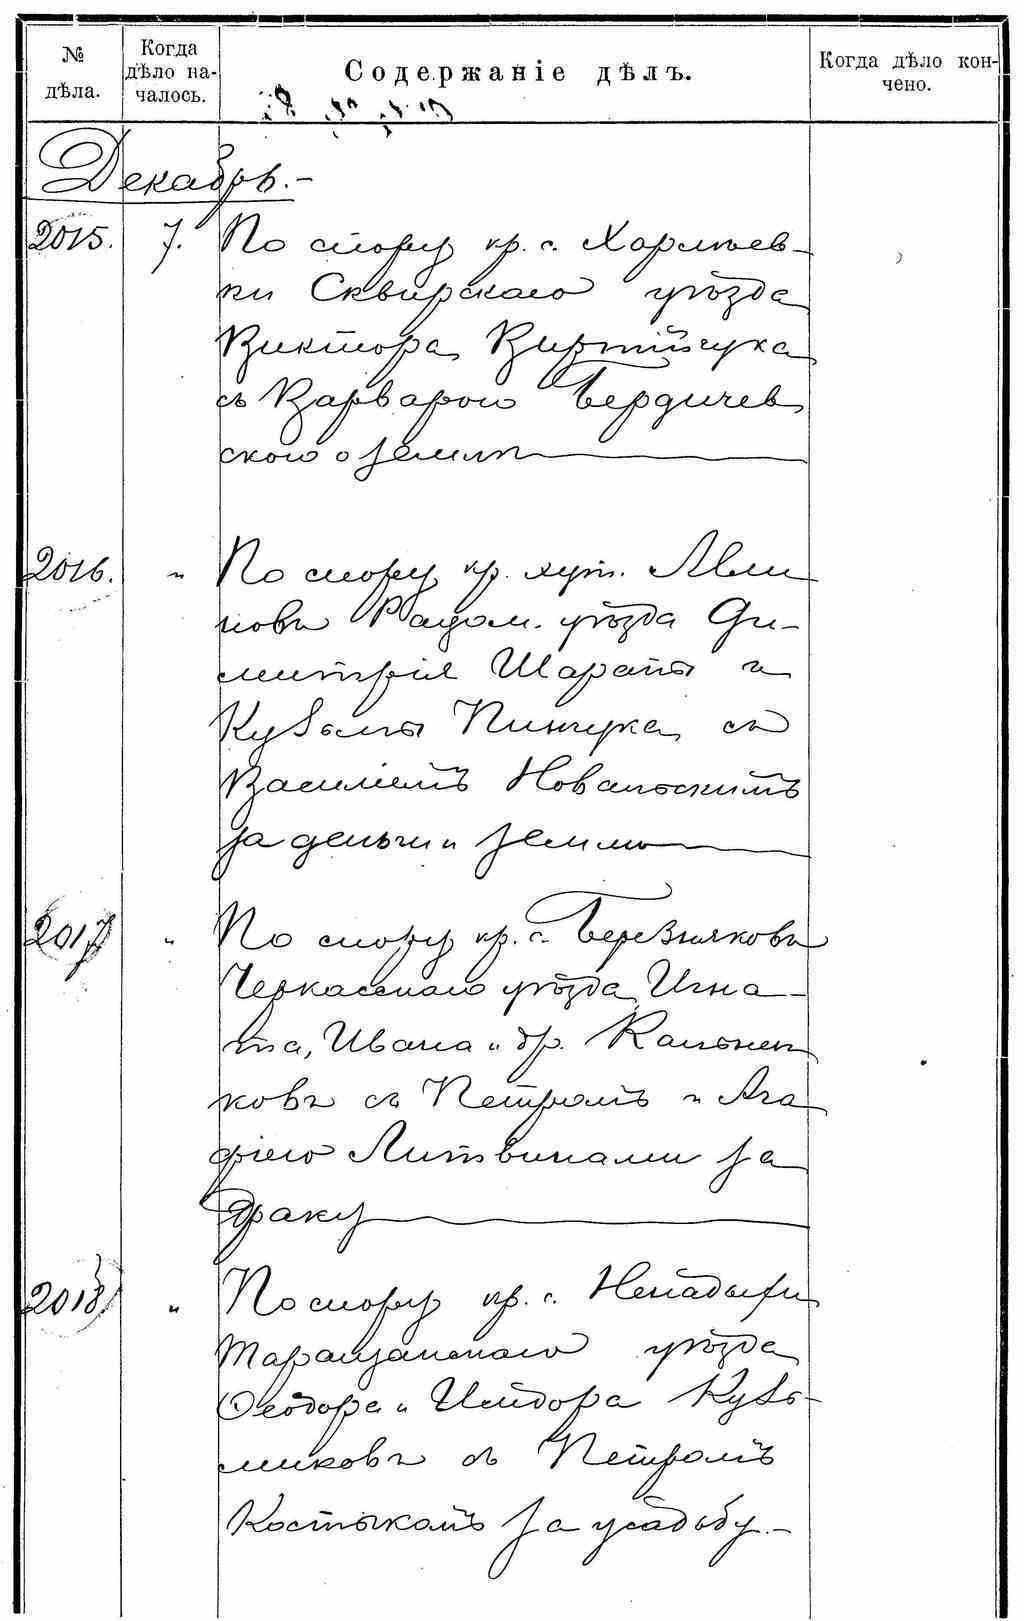 № дѣла.
Когда дѣло на-чалось.
Содержаніе дѣлъ.
Когда дѣло кон-чено.
Декабрь.-
2015. 7. По спору кр. с. Харлѣев-
ки Сквирскаго уѣзда
Виктора
съ Варварою Бердичев
ского о землѣ
2016. " По спору кр. хут.
новъ Радом. уѣзда Ди-
митрія Шарапы и
Кузьмы Пинчука съ
Василіемъ Новальскимъ
за деньги и землю
2017 " По спору кр. с. Березняковъ
Черкасскаго уѣзда Игна-
та, Ивана и др.
ковъ съ Петромъ и Ага
фіею Литвинами за
драку
2018 " По спору кр. с. Ненадыхи
Таращанскаго уѣзда
Ѳеодора и Исидора Кузь-
миковъ съ Петромъ
Костыкомъ за усадьбу.-